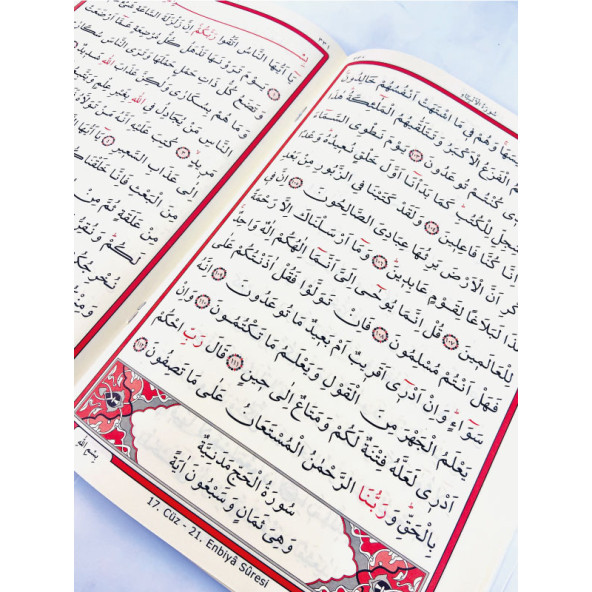 ٣٣٠
سورة الانبياء
وَهُمْ فِي مَا اشْتَهَتْ اَنْفُسُهُمْ خَالِدُونَ
الْفَزَعُ الْاَكْبَرُ وَتَتَلَقّٰيهُمُ الْمَلٰٓئِكَةُ هٰذَا
كُنْتُمْ تُوعَدُونَ ﴿١٠٣﴾ يَوْمَ نَطْوِى السَّمَٓاءَ
لِلْكُتُبِ كَمَا بَدَأْنَٓا اَوَّلَ خَلْقٍ نُعِيدُهُ وَعْدًا
اِنَّا كُنَّا فَاعِلِينَ ﴿١٠٤﴾ وَلَقَدْ كَتَبْنَا فِي الزَّبُورِ مِنْ بَعْدِ
الذِّكْرِ اَنَّ الْاَرْضَ يَرِثُهَا عِبَادِىَ الصَّالِحُونَ ﴿١٠٥﴾ اِنَّ فِي
هٰذَا لَبَلَاغًا لِقَوْمٍ عَابِدِينَ ﴿١٠٦﴾ وَمَٓا اَرْسَلْنَاكَ اِلَّا رَحْمَةً
لِلْعَالَمِينَ ﴿١٠٧﴾ قُلْ اِنَّمَا يُوحٰٓى اِلَىَّ اَنَّمَٓا اِلٰهُكُمْ اِلٰهٌ وَاحِدٌ
فَهَلْ اَنْتُمْ مُسْلِمُونَ ﴿١٠٨﴾ فَاِنْ تَوَلَّوْا فَقُلْ اٰذَنْتُكُمْ عَلٰى
سَوَٓاءٍ وَاِنْ اَدْرِٓى اَقَرِيبٌ اَمْ بَعِيدٌ مَا تُوعَدُونَ ﴿١٠٩﴾ اِنَّهُ
يَعْلَمُ الْجَهْرَ مِنَ الْقَوْلِ وَيَعْلَمُ مَا تَكْتُمُونَ ﴿١١٠﴾ وَاِنْ
اَدْرِى لَعَلَّهُ فِتْنَةٌ لَكُمْ وَمَتَاعٌ اِلٰى حِينٍ ﴿١١١﴾ قَالَ رَبِّ احْكُمْ
بِالْحَقِّ وَرَبُّنَا الرَّحْمٰنُ الْمُسْتَعَانُ عَلٰى مَا تَصِفُونَ ﴿١١٢﴾
سُورَةُ الْحَجِّ مَدَنِيَّةٌ
وَهِىَ ثَمَانٍ وَسَبْعُونَ اٰيَةً
17. Cüz - 21. Enbiyâ Sûresi
٣٣١
يَٓا اَيُّهَا النَّاسُ اتَّقُوا رَبَّكُمْ اِنَّ زَلْزَلَةَ السَّاعَةِ
يَوْمَ تَرَوْنَهَا تَذْهَلُ كُلُّ مُرْضِعَةٍ عَمَّٓا اَرْضَعَتْ
وَتَضَعُ كُلُّ ذَاتِ حَمْلٍ حَمْلَهَا وَتَرَى النَّاسَ
وَمَا هُمْ بِسُكَارٰى وَلٰكِنَّ عَذَابَ اللّٰهِ
النَّاسِ مَنْ يُجَادِلُ فِي اللّٰهِ بِغَيْرِ عِلْمٍ
مَرِيدٍ ﴿٣﴾ كُتِبَ عَلَيْهِ اَنَّهُ مَنْ تَوَلَّاهُ
اِلٰى عَذَابِ السَّعِيرِ ﴿٤﴾
مِنَ الْبَعْثِ فَاِنَّا خَلَقْنَاكُمْ
مِنْ عَلَقَةٍ ثُمَّ مِنْ
لَكُمْ وَنُقِرُّ
نُخْرِجُكُمْ
وَمِنْكُمْ